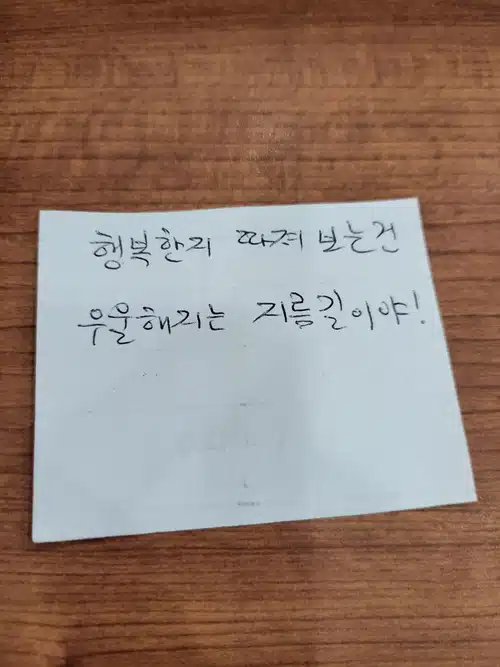 행복한지 따져 보는건
우울해지는 지름길이야!